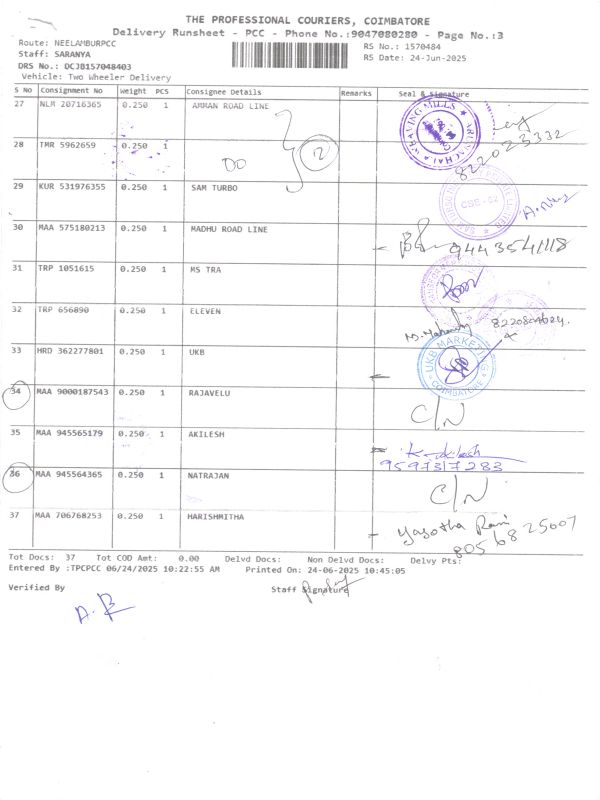 THE PROFESSIONAL COURIERS, COIMBATORE
Delivery Runsheet - PCC - Phone No.:9047080280 - Page No.:3
Route: NEELAMBURPCC
Staff: SARANYA
DRS No.: DCJB157048403
Vehicle: Two Wheeler Delivery
RS No.: 1570484
RS Date: 24-Jun-2025
S No Consignment No Weight PCS Consignee Details Remarks Seal & Signature
27 NLM 20716365 0.250 1 AMMAN ROAD LINE
WEAVING MILLS
822023332
28 TMR 5962659 0.250 1 DO 12
29 KUR 531976355 0.250 1 SAM TURBO
30 MAA 575180213 0.250 1 MADHU ROAD LINE 9443541118
31 TRP 1051615 0.250 1 MS TRA
32 TRP 656890 0.250 1 ELEVEN
33 HRD 362277801 0.250 1 UKB
UKB MARKETING COIMBATORE
34 MAA 9000187543 0.250 1 RAJAVELU C/N
35 MAA 945565179 0.250 1 AKILESH K. Akilesh
9597317283
36 MAA 945564365 0.250 1 NATRAJAN C/N
37 MAA 706768253 0.250 1 HARISHMITHA Yasotha Rani
8056825007
Tot Docs: 37 Tot COD Amt: 0.00 Delvd Docs: Non Delvd Docs: Delvy Pts:
Entered By :TPCPCC 06/24/2025 10:22:55 AM Printed On: 24-06-2025 10:45:05
Verified By Staff Signature